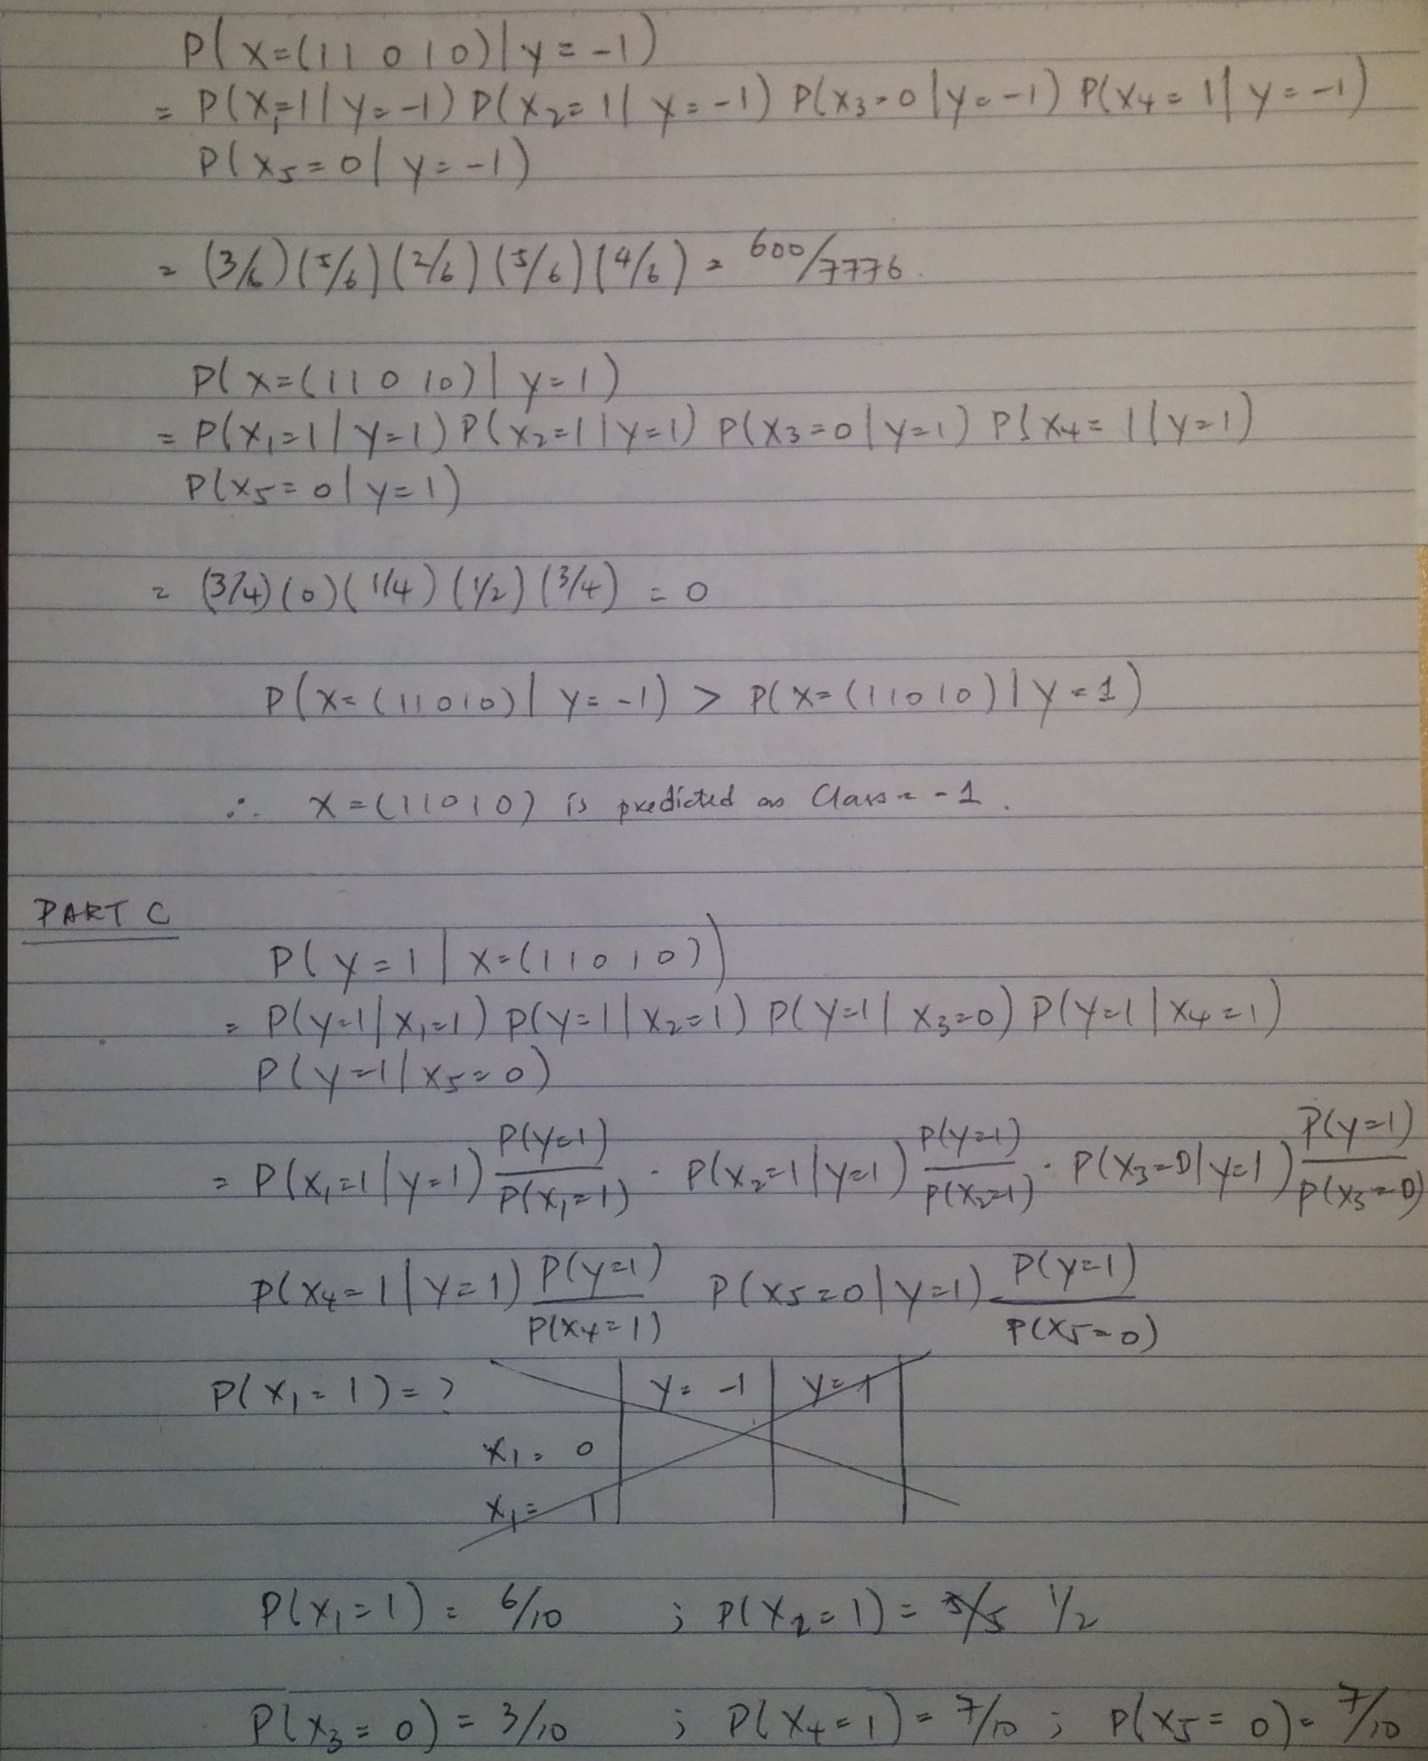 P(X=(11010)|y=-1)
= P(X1=1|y=-1) P(X2=1|y=-1) P(X3=0|y=-1) P(X4=1|y=-1)
P(X5=0|y=-1)
= (3/6)(5/6)(2/6)(5/6)(4/6) = 600/7776.
P(X=(11010)|y=1)
= P(X1=1|y=1) P(X2=1|y=1) P(X3=0|y=1) P(X4=1|y=1)
P(X5=0|y=1)
= (3/4)(0)(1/4)(1/2)(3/4) = 0
P(X=(11010)|y=-1) > P(X=(11010)|y=1)
∴ X=(11010) is predicted as Class = -1.
PART C
P(y=1|X=(11010))
= P(y=1|X1=1) P(y=1|X2=1) P(y=1|X3=0) P(y=1|X4=1)
P(y=1|X5=0)
= P(X1=1|y=1) P(y=1)/P(X1=1) · P(X2=1|y=1) P(y=1)/P(X2=1) · P(X3=0|y=1) P(y=1)/P(X3=0)
P(X4=1|y=1) P(y=1)/P(X4=1) P(X5=0|y=1) P(y=1)/P(X5=0)
P(X1=1)=? y=-1 y=1
X1=0
X1=1
P(X1=1) = 6/10 ; P(X2=1) = 1/2
P(X3=0) = 3/10 ; P(X4=1) = 7/10 ; P(X5=0) = 7/10